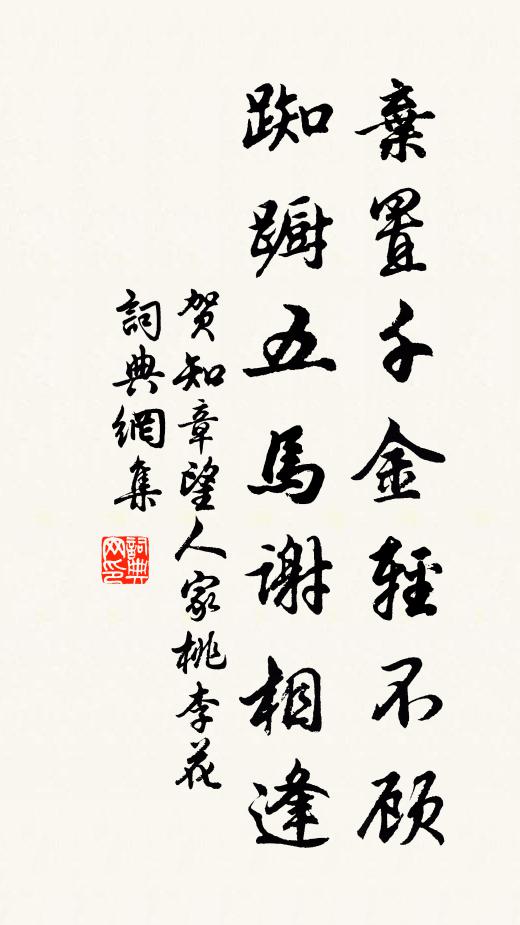 棄置千金輕不顾
踟蹰五馬謝相逢
贺知章望人家桃李花
詞典網集
詞典網印